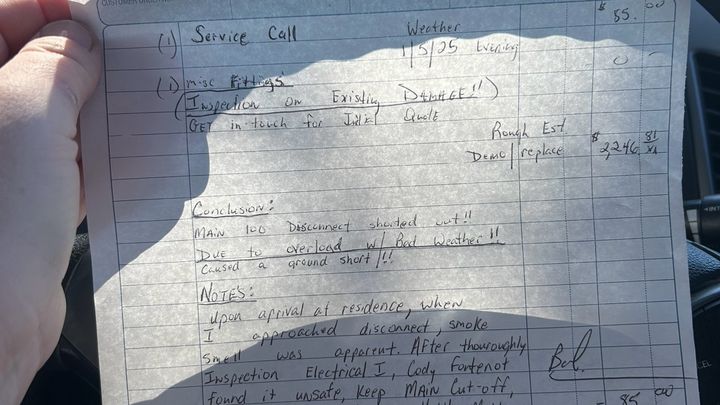 CUSTOMER
(1) Service Call $ 85. 00
Weather
1/5/25 Evening
(1) misc Fittings 0 -
(Inspection on Existing DAMAGE!!)
GET in touch for Quote
Rough Est
Demo/replace $ 2,246. 81
Conclusion:
MAIN 100 Disconnect shorted out!!
Due to overload w/ Bad Weather!!
Caused a ground short!!!
NOTES:
upon aprival at residence, when
I approached disconnect, smoke
Smell was apparent. After thouroughly
Inspection Electrical I, Cody Fontenot
found it unsafe, Keep MAIN Cut-off,
Bal.
85 00